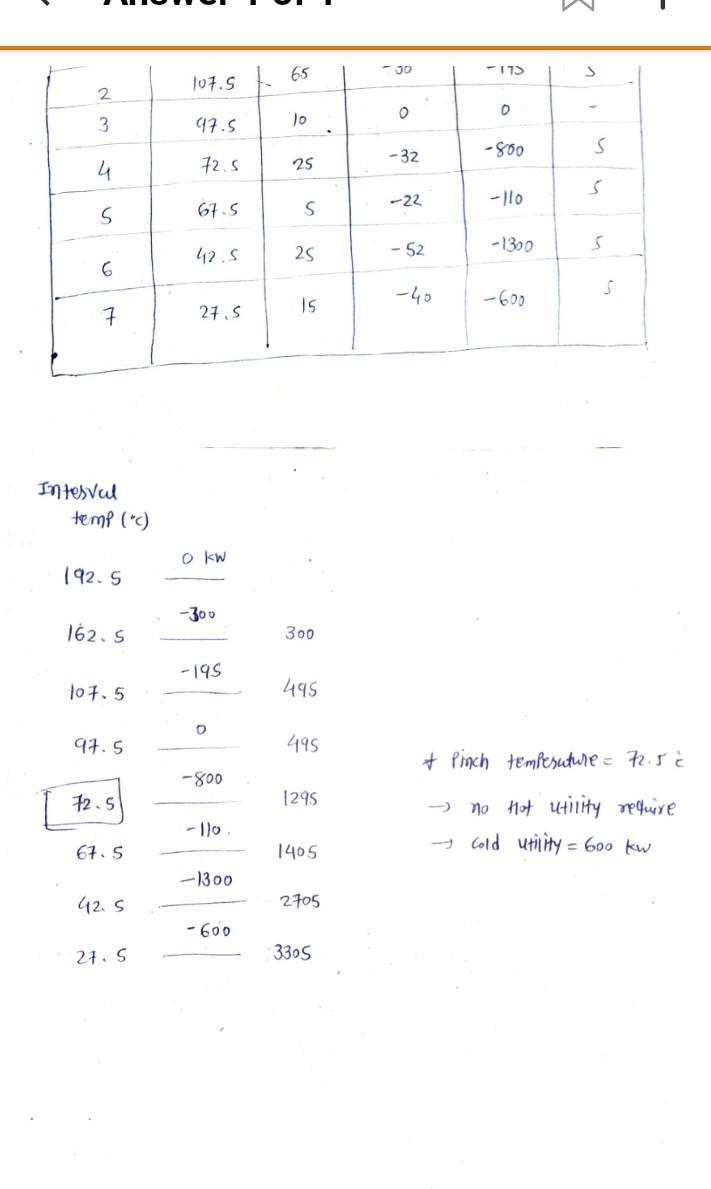 2 107.5 65 -175 S
3 97.5 10 0 0 -
4 72.5 25 -32 -800 S
5 67.5 5 -22 -110 S
6 42.5 25 -52 -1300 S
7 27.5 15 -40 -600 S
Interval
temp (°c)
192.5 0 kw
-300
162.5 300
-195
107.5 495
0
97.5 495
-800
72.5 1295
-110.
67.5 1405
-1300
42.5 2705
-600
27.5 3305
* Pinch temperature = 72.5 °c
→ no Hot utility require
→ cold utility = 600 kw